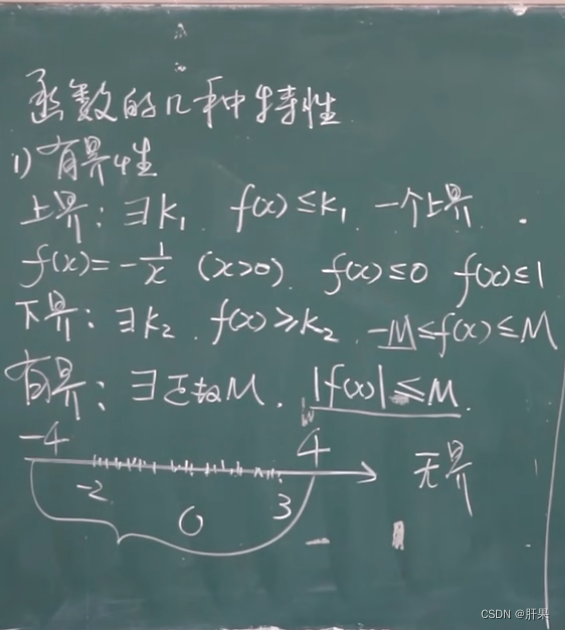 函数的几种特性
1) 有界性
上界：∃k₁. f(x)≤k₁. 一个上界.
f(x)=-1/x (x>0). f(x)≤0 f(x)≤1
下界：∃k₂. f(x)≥k₂. -M≤f(x)≤M
有界：∃正数M. |f(x)|≤M.
-4 4
-2 0 3 无界
CSDN @肝果